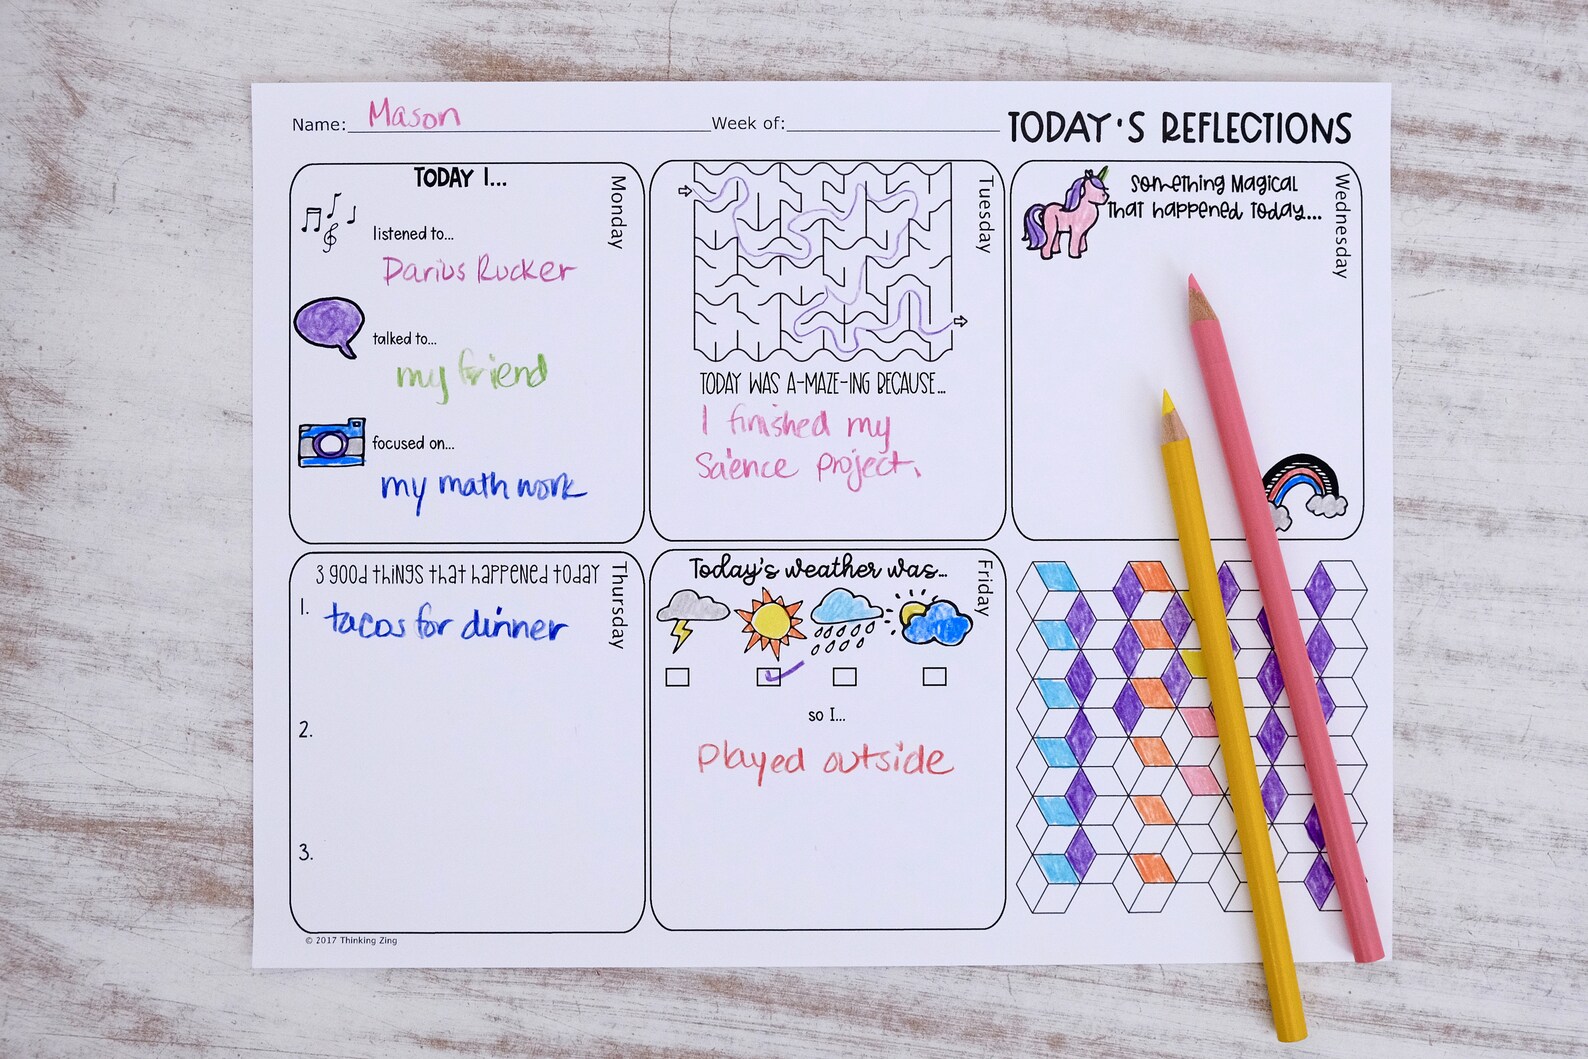 Name: Mason Week of: TODAY'S REFLECTIONS
Monday
TODAY I...
listened to...
Darius Rucker
talked to...
my friend
focused on...
my math work
Tuesday
TODAY WAS A-MAZE-ING BECAUSE...
I finished my
Science project.
Wednesday
Something Magical
That happened Today...
Thursday
3 good things that happened today
1. tacos for dinner
2.
3.
Friday
Today's weather was...
so I...
Played outside
© 2017 Thinking Zing